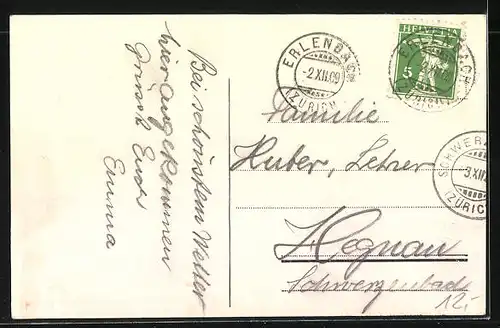 Bei schönstem Wetter
hier angekommen
grüsst Euch
Emma
ERLENBACH
-2.XII.09
(ZÜRICH)
HELVETIA
5
ERLENBACH
(ZÜRICH)
Familie
Huber, Lehrer
Hegnau
Schwerzenbach
SCHWERZ
3.XII
(ZÜRICH
12.-